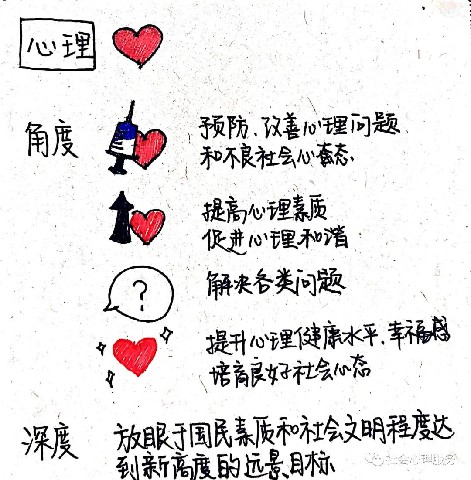 心理
角度
预防、改善心理问题
和不良社会心态.
提高心理素质
促进心理和谐
?
解决各类问题
提升心理健康水平、幸福感
培育良好社会心态
深度
放眼于国民素质和社会文明程度达
到新高度的远景目标
社会心理服务